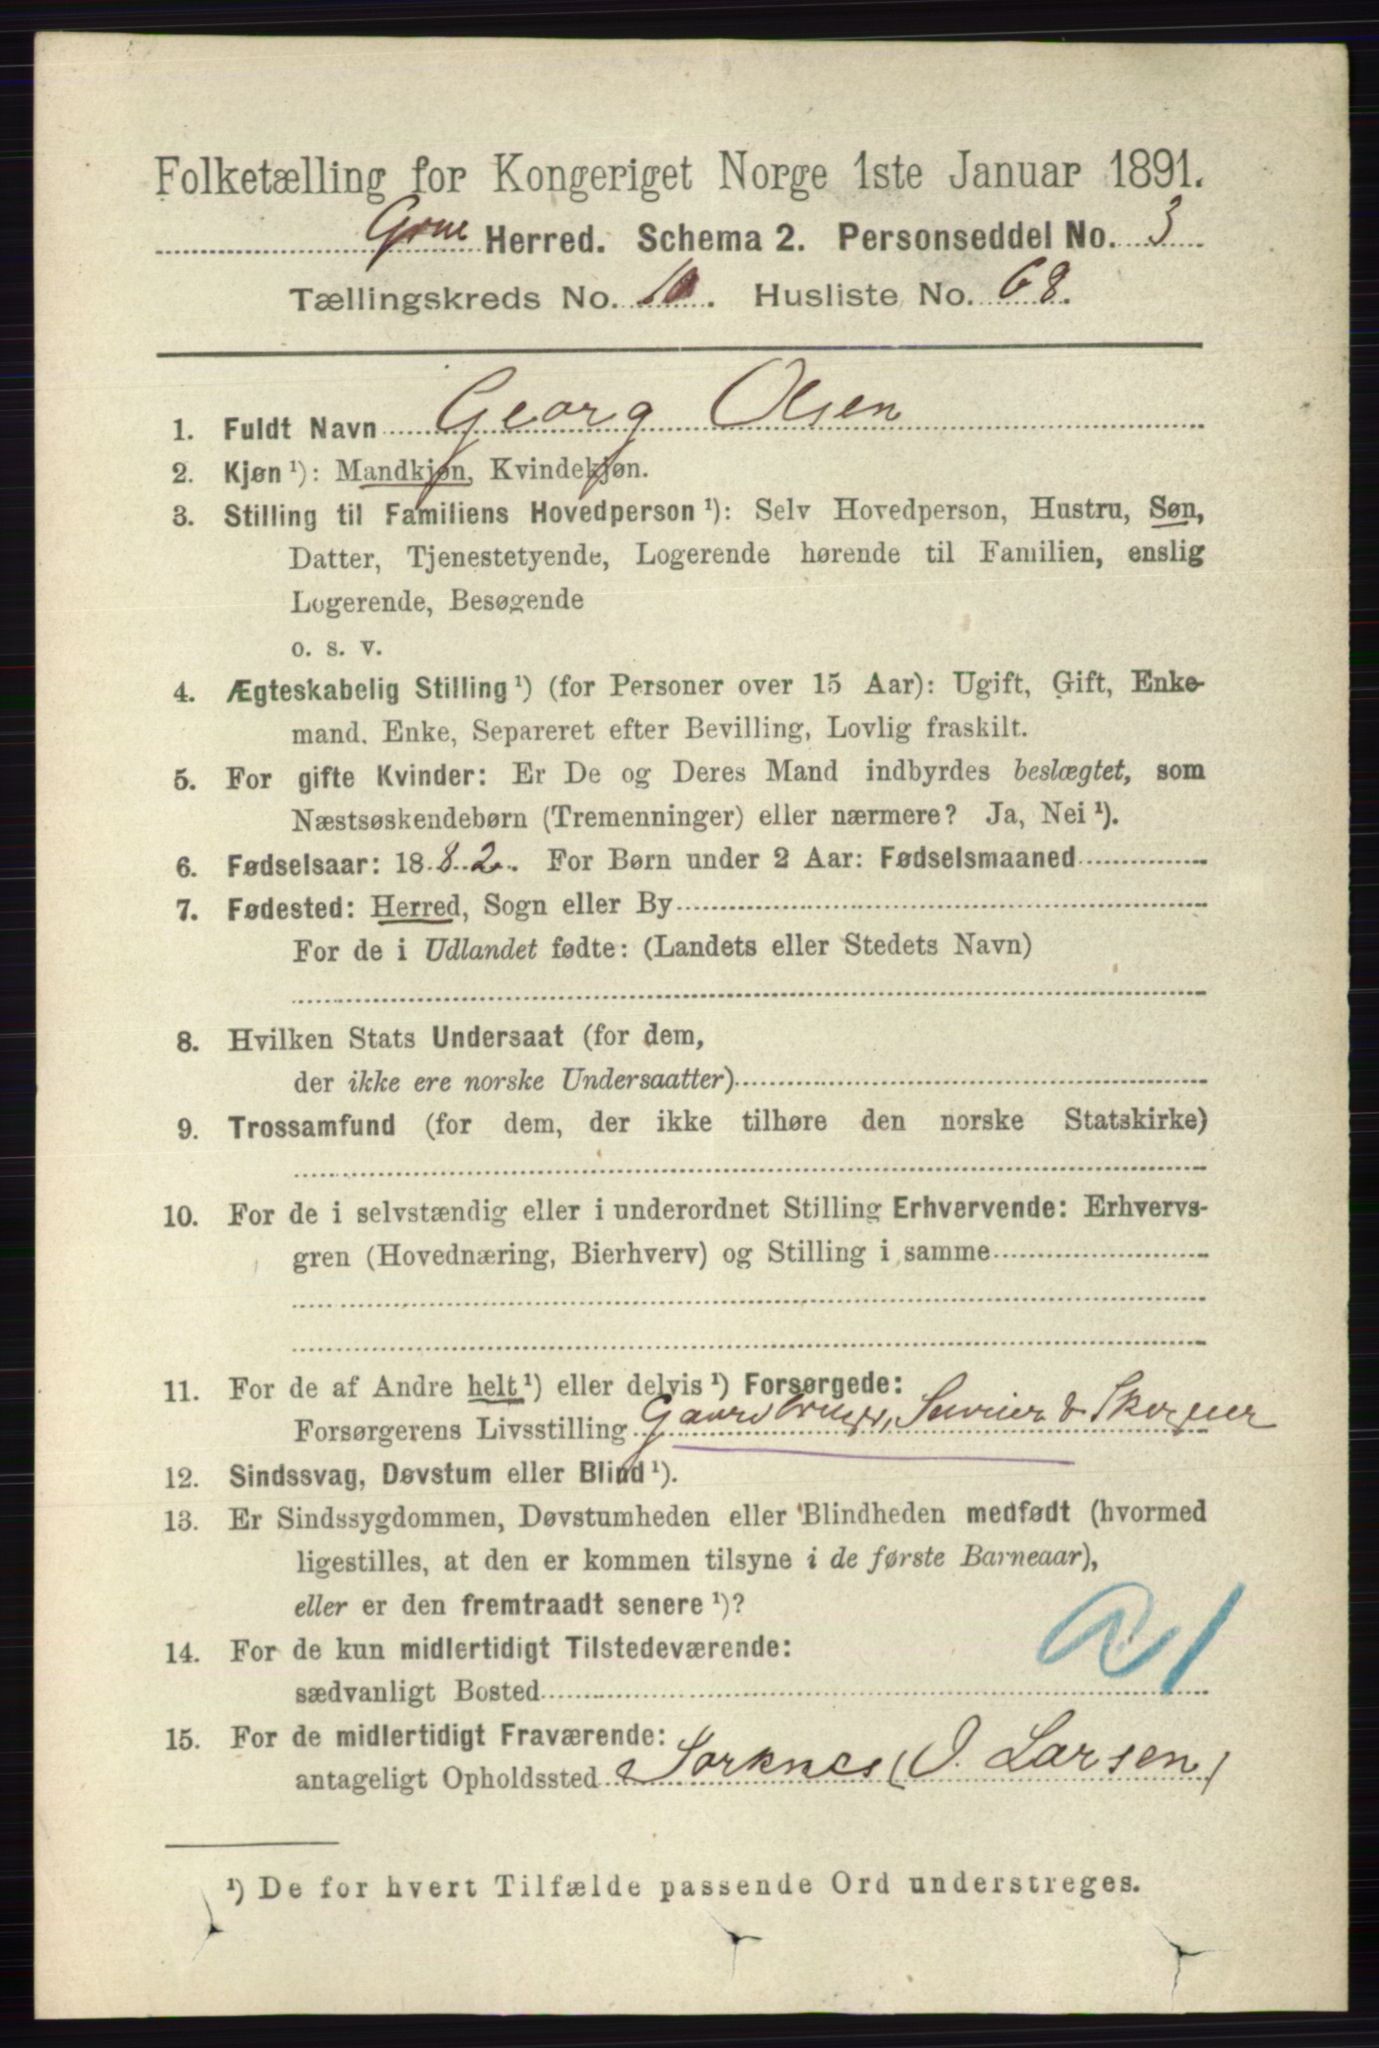 Folketælling for Kongeriget Norge 1ste Januar 1891.
Grue Herred. Schema 2. Personseddel No. 3
Tællingskreds No. 10. Husliste No. 68.
1. Fuldt Navn Georg Olsen
2. Kjøn ¹): Mandkjøn, Kvindekjøn.
3. Stilling til Familiens Hovedperson ¹): Selv Hovedperson, Hustru, Søn,
Datter, Tjenestetyende, Logerende hørende til Familien, enslig
Logerende, Besøgende
o. s. v.
4. Ægteskabelig Stilling ¹) (for Personer over 15 Aar): Ugift, Gift, Enke-
mand, Enke, Separeret efter Bevilling, Lovlig fraskilt.
5. For gifte Kvinder: Er De og Deres Mand indbyrdes beslægtet, som
Næstsøskendebørn (Tremenninger) eller nærmere? Ja, Nei ¹).
6. Fødselsaar: 1882. For Børn under 2 Aar: Fødselsmaaned
7. Fødested: Herred, Sogn eller By
For de i Udlandet fødte: (Landets eller Stedets Navn)
8. Hvilken Stats Undersaat (for dem,
der ikke ere norske Undersaatter)
9. Trossamfund (for dem, der ikke tilhøre den norske Statskirke)
10. For de i selvstændig eller i underordnet Stilling Erhvervende: Erhvervs-
gren (Hovednæring, Bierhverv) og Stilling i samme
11. For de af Andre helt ¹) eller delvis ¹) Forsørgede:
Forsørgerens Livsstilling Gaardbruger, & Skogeier
12. Sindssvag, Døvstum eller Blind ¹).
13. Er Sindssygdommen, Døvstumheden eller Blindheden medfødt (hvormed
ligestilles, at den er kommen tilsyne i de første Barneaar),
eller er den fremtraadt senere ¹)?
14. For de kun midlertidigt Tilstedeværende:
sædvanligt Bosted
21
15. For de midlertidigt Fraværende:
antageligt Opholdssted Sorknes (O. Larsen)
¹) De for hvert Tilfælde passende Ord understreges.